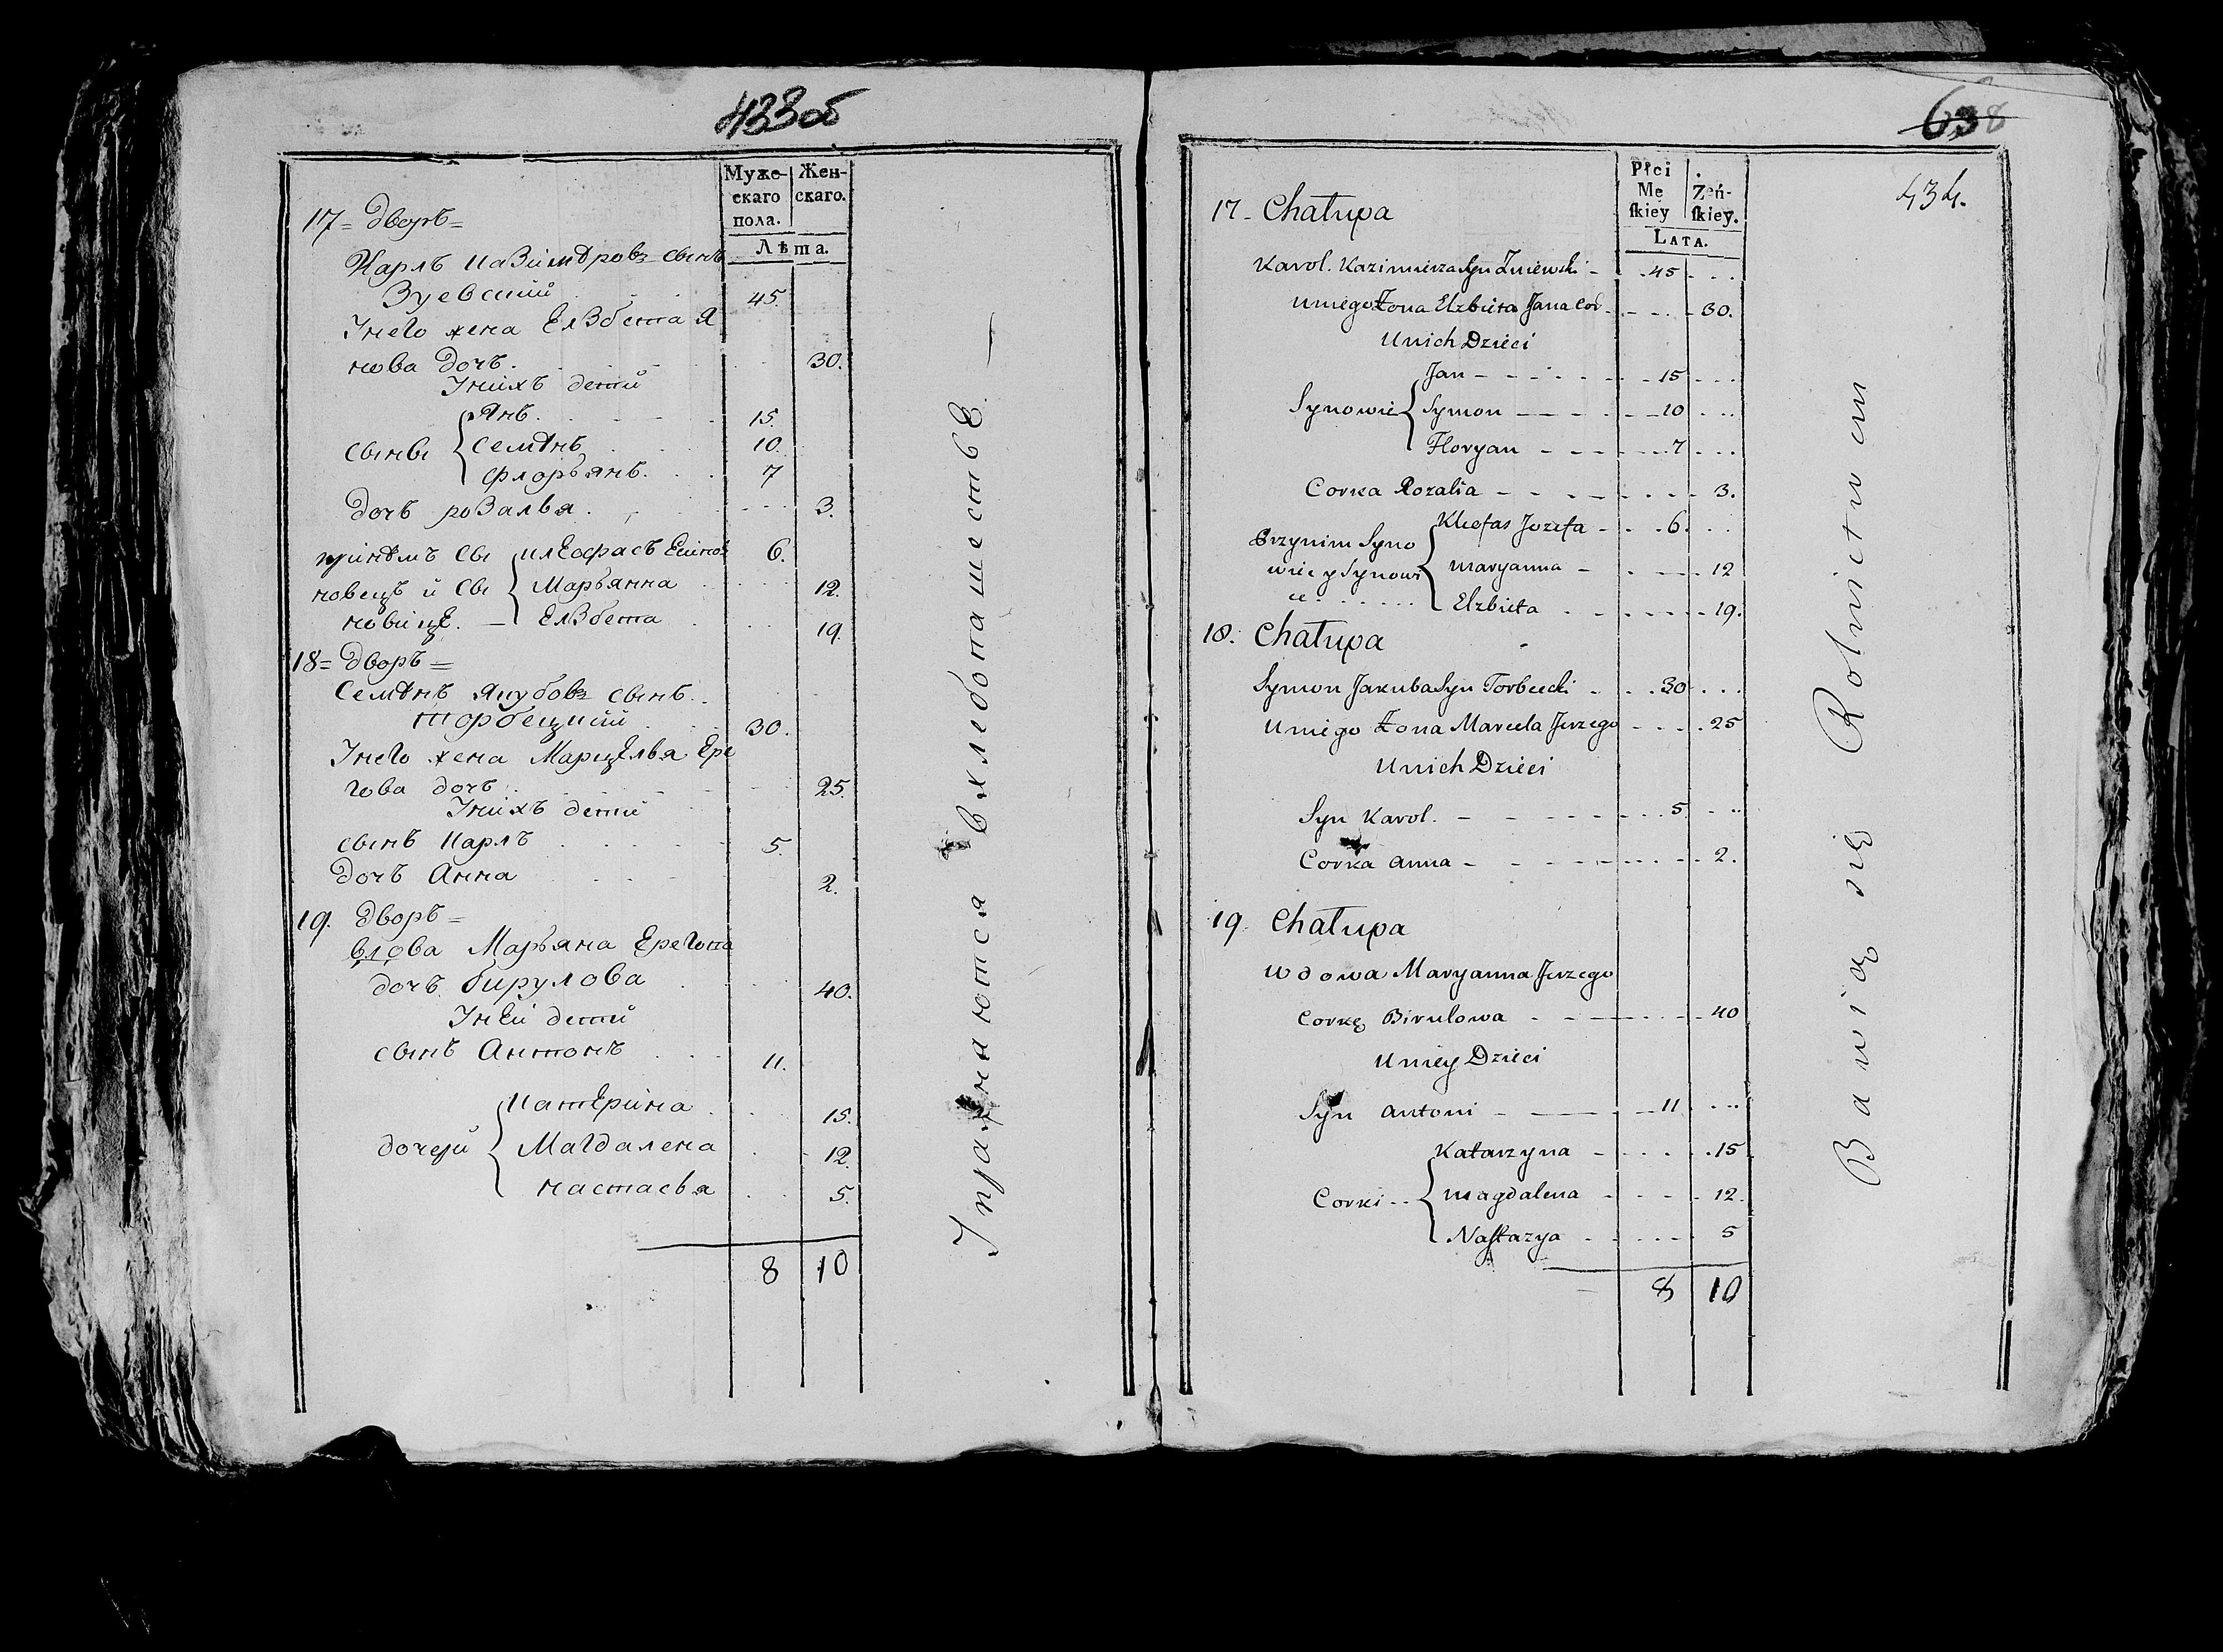 433об
Муже-
скаго
пола.
Жен-
скаго.
Лѣта.
17= дворъ=
Карлъ Казимѣровъ сынъ
Зуевский 45.
Унего жена Елзбета Я
нова дочъ. 30.
Унихъ детй
сынвı
Янъ. 15.
Семѣнъ 10.
Флорьянъ. 7
дочъ розалья. 3.
принѣмъ сы
новецъ й сы
новицE.
клEофасъ 6.
Марьянна 12.
Елзбета 19.
18= дворъ=
Семѣнъ Якубовъ сынъ.
торбецкий 30.
Унего жена МарцEлья Ере
гова дочъ. 25.
Унихъ детй
сынъ Карлъ 5.
дочъ Анна 2.
19. дворъ=
вдова Марьяна
дочъ бирулова 40.
УнEй детй
сынъ Антонъ 11.
дочерй
КатEрина 15.
Магдалена 12.
настасья 5.
8 10
Упражнаются вхлебопашествE.
638
434.
Płci
Mę
ſkiey
Zeń-
ſkiey.
LATA.
17- Chałupa
Karol. Kazimierza Syn Zuiewski 45
Uniego Żona Elzbieta Jana Cor 30.
Unich Dzieci
Synowie
Jan 15
Symon 10
Floryan 7
Corka Rozalia 3.
Przynim Syno
wiec y Synowi
ce
Kleofas Jozefa 6.
Maryanna 12
Elzbieta 19.
18. Chałupa
Symon Jakuba Syn Torbecki 30
Uniego Żona Marcela Jerzego 25
Unich Dzieci
Syn Karol. 5
Corka Anna 2.
19. Chałupa
Wdowa Maryanna Jerzego
Corkę Birulowa 40
Uniey Dzieci
Syn Antoni 11
Corki
Katarzyna 15
Magdalena 12.
Naſtazya 5
8 10
Bawią się Rolnictwem